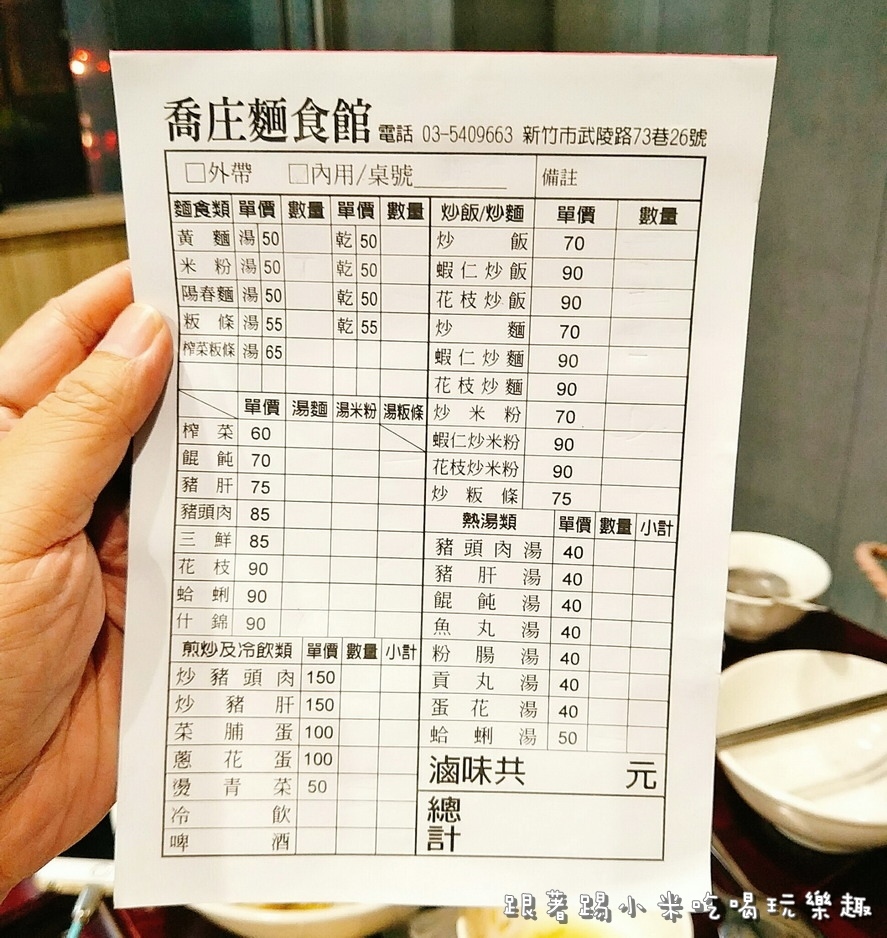 喬庄麵食館 電話 03-5409663 新竹市武陵路73巷26號
□外帶 □內用/桌號________ 備註
麵食類 單價 數量 單價 數量
黃麵 湯 50 乾 50
米粉 湯 50 乾 50
陽春麵 湯 50 乾 50
粄條 湯 55 乾 55
榨菜粄條 湯 65
單價 湯麵 湯米粉 湯粄條
榨菜 60
餛飩 70
豬肝 75
豬頭肉 85
三鮮 85
花枝 90
蛤蜊 90
什錦 90
煎炒及冷飲類 單價 數量 小計
炒豬頭肉 150
炒豬肝 150
菜脯蛋 100
蔥花蛋 100
燙青菜 50
冷飲
啤酒
炒飯/炒麵 單價 數量
炒飯 70
蝦仁炒飯 90
花枝炒飯 90
炒麵 70
蝦仁炒麵 90
花枝炒麵 90
炒米粉 70
蝦仁炒米粉 90
花枝炒米粉 90
炒粄條 75
熱湯類 單價 數量 小計
豬頭肉湯 40
豬肝湯 40
餛飩湯 40
魚丸湯 40
粉腸湯 40
貢丸湯 40
蛋花湯 40
蛤蜊湯 50
滷味共 元
總計
跟著踢小米吃喝玩樂趣